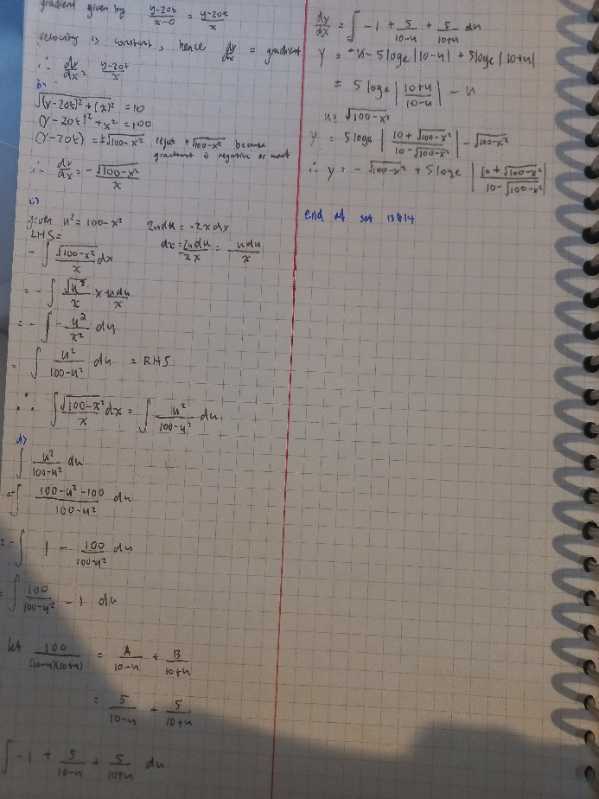 gradient given by \frac{y-20t}{x-0} = \frac{y-20t}{x}
velocity is constant, hence \frac{dy}{dx} = gradient
∴ \frac{dy}{dx} = \frac{y-20t}{x}
b)
\sqrt{(y-20t)^2 + (x)^2} = 10
(y-20t)^2 + x^2 = 100
(y-20t) = ±\sqrt{100-x^2} reject +\sqrt{100-x^2} because
gradient is negative
∴ \frac{dy}{dx} = -\frac{\sqrt{100-x^2}}{x}
c)
given u^2 = 100-x^2 2udu = -2xdx
LHS =
dx = \frac{2udu}{2x} = -\frac{udu}{x}
-\int \frac{\sqrt{100-x^2}}{x} dx
= -\int \frac{\sqrt{u^2}}{x} × \frac{udu}{x}
= -\int -\frac{u^2}{x^2} du
= \int \frac{u^2}{100-u^2} du = RHS
∴ \int \frac{\sqrt{100-x^2}}{x} dx = \int \frac{u^2}{100-u^2} du
d)
\int \frac{u^2}{100-u^2} du
= -\int \frac{100-u^2-100}{100-u^2} du
= -\int 1 - \frac{100}{100-u^2} du
= \int \frac{100}{100-u^2} - 1 du
let \frac{100}{(10-u)(10+u)} = \frac{A}{10-u} + \frac{B}{10+u}
= \frac{5}{10-u} + \frac{5}{10+u}
\int -1 + \frac{5}{10-u} + \frac{5}{10+u} du
\frac{dy}{dx} = \int -1 + \frac{5}{10-u} + \frac{5}{10+u} du
y = -u - 5 loge |10-u| + 5 loge |10+u|
= 5 loge |\frac{10+u}{10-u}| - u
u = \sqrt{100-x^2}
y = 5 loge |\frac{10+\sqrt{100-x^2}}{10-\sqrt{100-x^2}}| - \sqrt{100-x^2}
∴ y = -\sqrt{100-x^2} + 5 loge |\frac{10+\sqrt{100-x^2}}{10-\sqrt{100-x^2}}|
end of sat 13&14